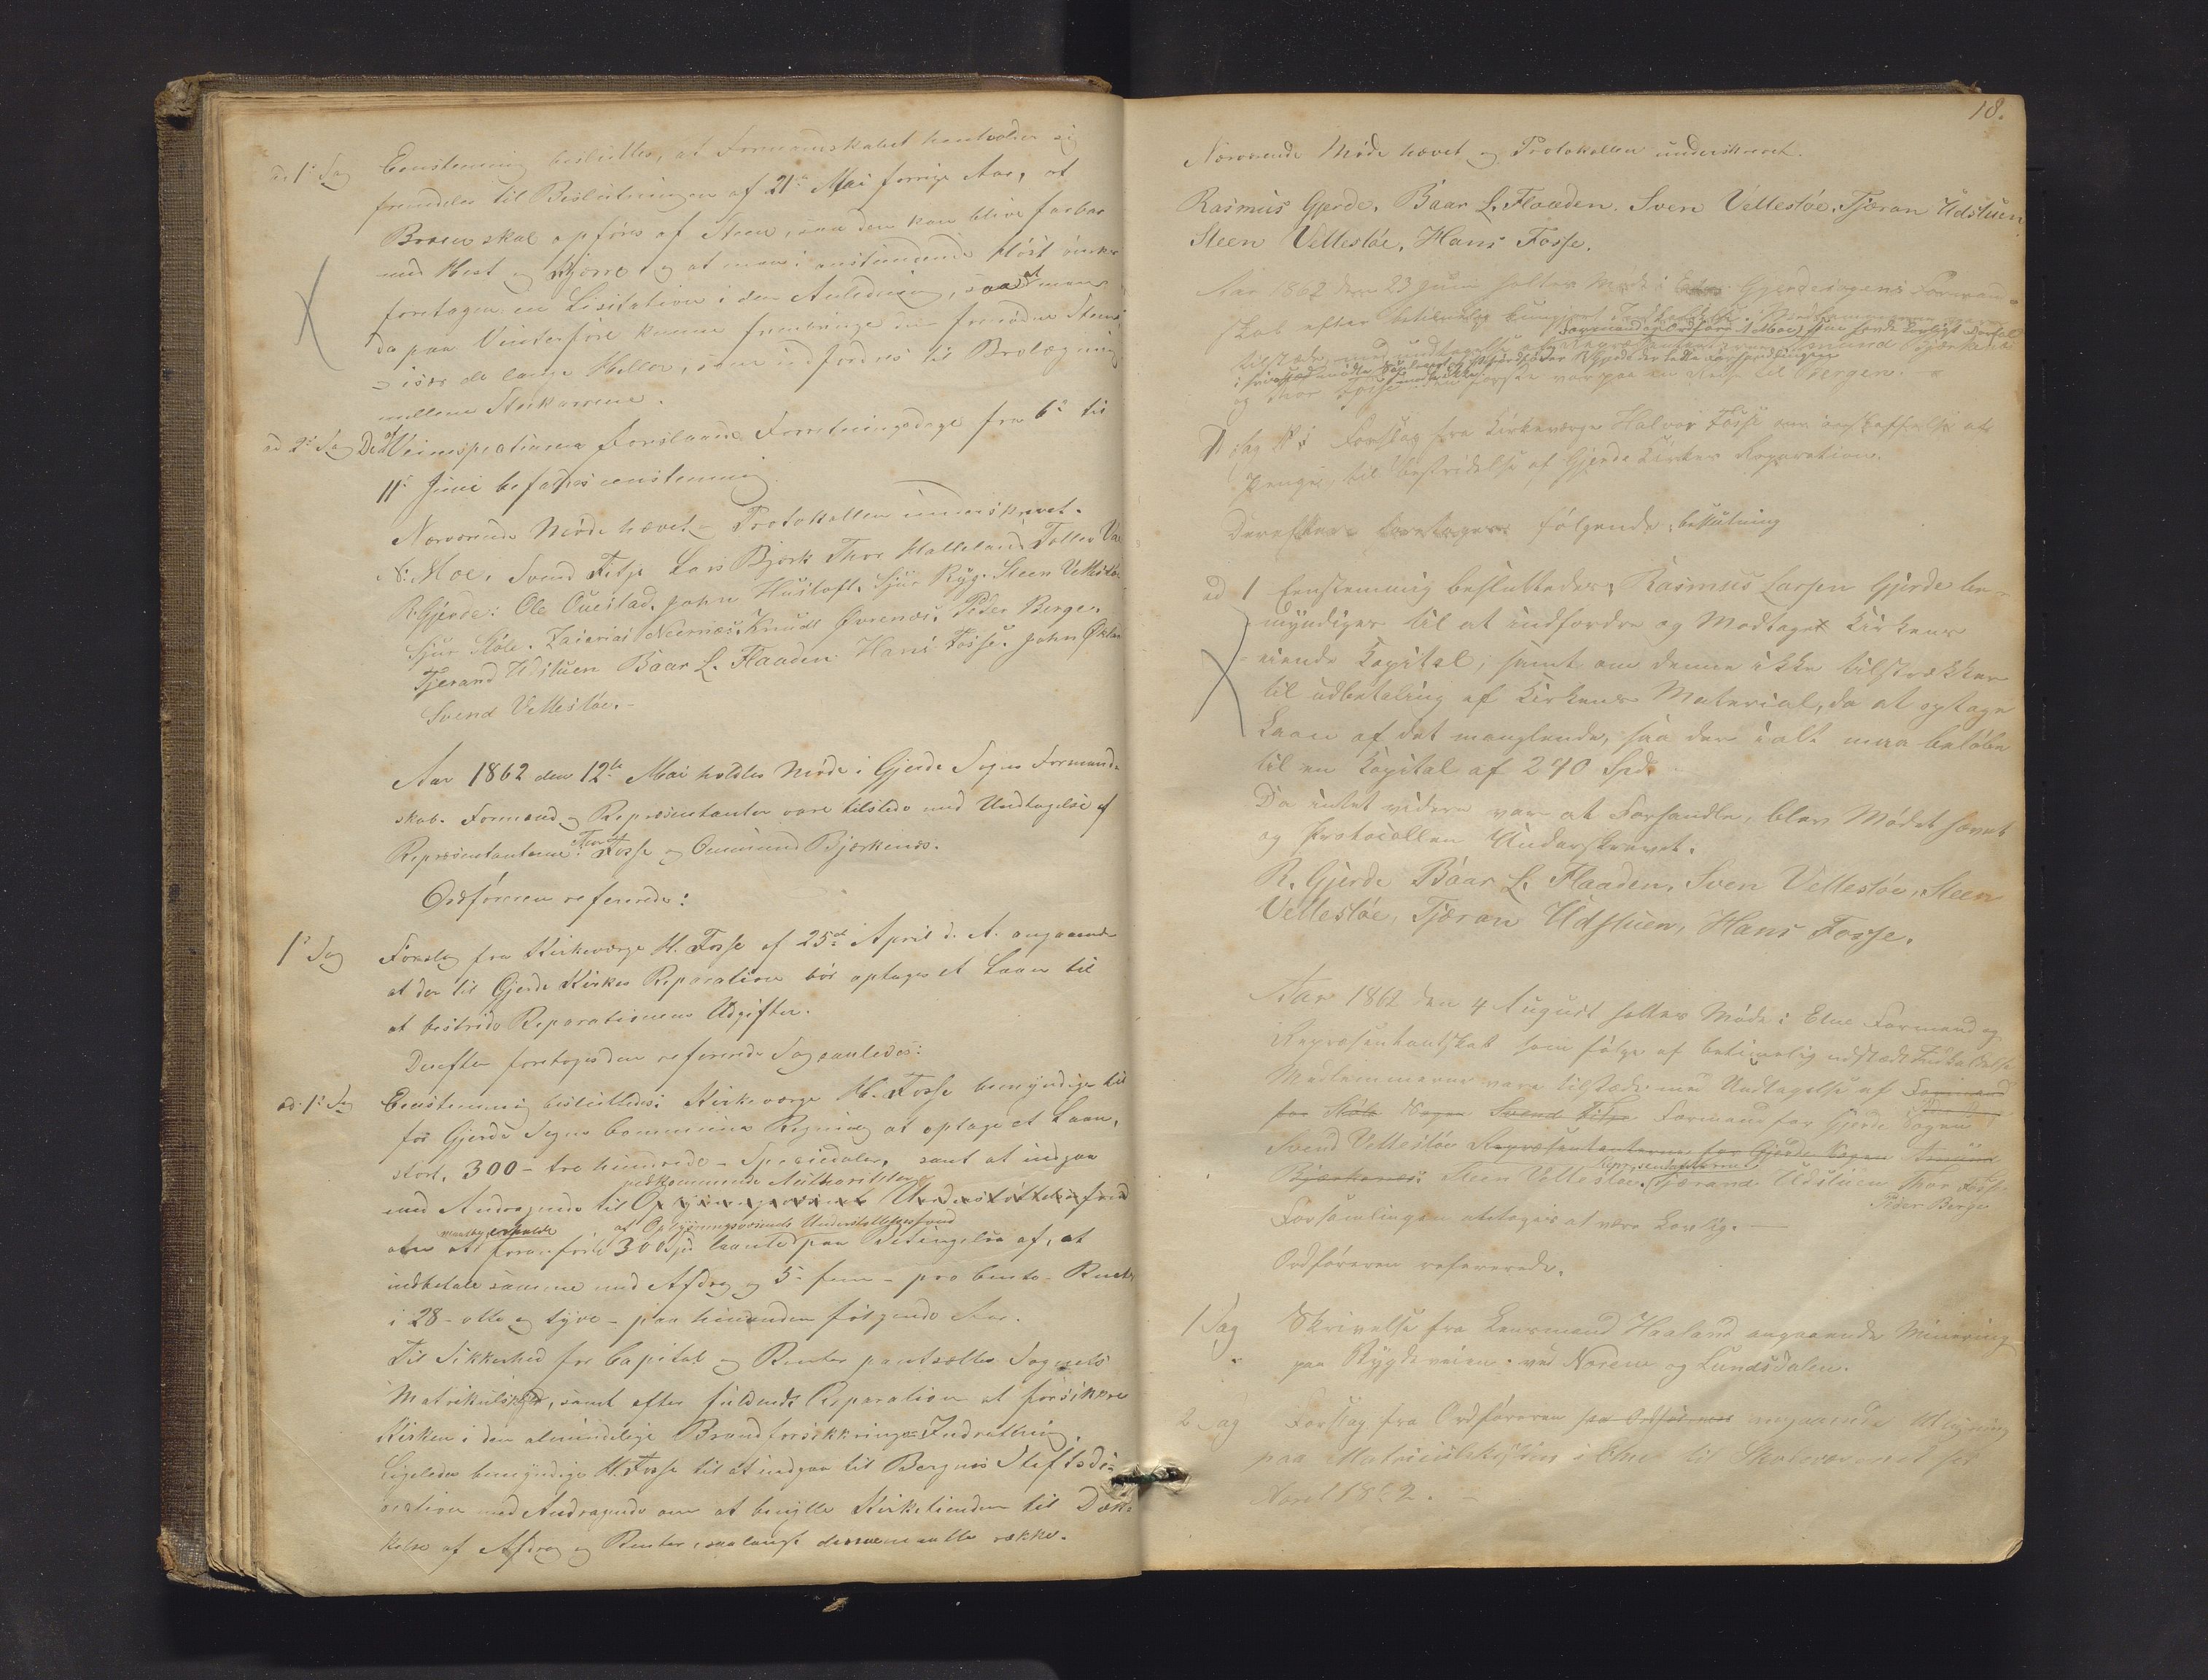 ad 1ste Sag Eenstemmig besluttes, at Formandskabet henholder sig
fremdeles til Beslutningen af 21de Mai forrige Aar, at
Broen skal opføres af Steen, saa den kan blive farbar
med Hest og Kjærre og at man i anstundende Høst ønsker
foretagen en Lisitation i den Anledning, saa at man
da paa Vinterføre kunne frembringe den fornødne Steen
især de lange Heller, som udfordres til Brolægning
mellem Steenkarrene.
ad 2den Sag De af Veiinspectionen foreslaaede Forretningsdage fra 6te til
11te Juni befattes eenstemmig.
Nærværende Møde hævet – Protokollen underskrevet.
N: Moe. Svend Fitje Lars Bjørk Thor Halleland Tollev
R. Gjerde: Ole Ouestad. John Hustoft. Sjur Ryg. Steen Vettesløe
Sjur Støle. Zacarias Neernæs. Knudt Øvrenæs. Peder Berge.
Tjerand Udstuen Baar L. Flaaden Hans Fosse. John
Svend Vettesløe. –
Aar 1862 den 12te Mai holdtes Møde i Gjerde Sogns Formand-
skab. Formænd og Repræsentanter vare tilstede med Undtagelse af
Repræsentanterne: Thor Fosse og Ommund Bjørkenæs.
Ordføreren refererede:
1ste Sag Forslag fra Kirkeværge H. Fosse af 25de April d. A. angaaende
at der til Gjerde Kirkes Reparation bør optages et Laan til
at bestride Reparationens Udgifter.
Derefter foretoges den refererede Sag saaledes:
ad 1ste Sag Eenstemmig besluttedes: Kirkeværge H. Fosse bemyndiges til
for Gjerde Sogns Communes Regning at optage et Laan,
stort, 300 – tre hundrede – Speciedaler, samt at indgaa
vedkommende Authoriteter
med Andragende til Oplysningsvæsenets Understøttelsesfond
maatte erholde af Oplysningsvæsenets Understøttelsesfond
om at foranførte 300 Spd. laante paa Betingelse af, at
indbetale samme med Afdrag og 5 – fem – pro Cento Rente
i 28 – otte og tyve – paa hinanden følgende Aar.
Til Sikkerhed for Capital og Renter pantsættes Sognets
Matrikulskyld, samt efter fuldendt Reparation at forsikkre
Kirken i den almindelige Brandforsikkrings-Indretning.
Ligeledes bemyndiges H. Fosse til at indgaa til Bergens Stiftsdi-
rection med Andragende om at benytte Kirketienden til Dæk-
kelse af Afdrag og Renter, saa langt denne maatte række.
18.
Nærværende Møde hævet og Protokollen underskrevet.
Rasmus Gjerde. Baar L. Flaaden. Sven Vettesløe. Tjæran Udstuen
Steen Vettesløe. Hans Fosse.
Aar 1862 den 23 Juni holtes Møde i Gjerdesogens Formand-
skab efter betimelig kungjort Indkaldelse. Medlemmerne vare
Formand og Ordfører N Moe, som havde Lovligt Forfald
tilstede, med undtagelse af Repræsentanterne Omund Bjørkenes
og Thor Fosse var paa en Reise til Bergen.
Sag No 1 Forslag fra Kirkeværge Halvor Fosse om anskaffelse af
penge, til bestridelse af Gjerde Kirkes Reparation.
Derefter foretages følgende beslutning
ad 1 Eenstemmig besluttedes, Rasmus Larsen Gjerde be-
myndiges til at indfordre og Modtaget Kirkens
eiende Kapital, samt om denne ikke tilstrækker
til udbetaling af Kirkens Material, da at optage
Laan af det manglende, saa der i alt maa beløbe
til en Kapital af 240 Spd.
Da intet videre var at Forhandle, blev Mødet hævet
og Protocollen Underskrevet.
R. Gjerde Baar L. Flaaden, Sven Vettesløe, Steen
Vettesløe, Tjæran Udstuen, Hans Fosse.
Aar 1862 den 4 August holtes Møde i Etne Formand og
Repræsentantskab som følge af betimelig udstædt Indkaldelse
Medlemmerne vare tilstæde med Undtagelse af Formand
for Støle Sogen Svend Fitje Formand for Gjerde Sogen
Svend Vettesløe Repræsentanterne for Gjerde Sogen Omund
Repræsentanterne
Bjørkenes: Steen Vettesløe, Tjærand Udstuen Thor Fosse
Peder Berge
Forsamlingen antages at være Lovlig. –
Ordføreren refererede.
1 Sag Skrivelse fra Lensmand Haaland angaaende Minering
paa Bygdeveien ved Norem og Lundsdalen.
2 Sag Forslag fra Ordføreren fra Ordføreren angaaende Udligning
paa Matriculskylden i Etne til Skolevæsenet for
Aaret 1862. –